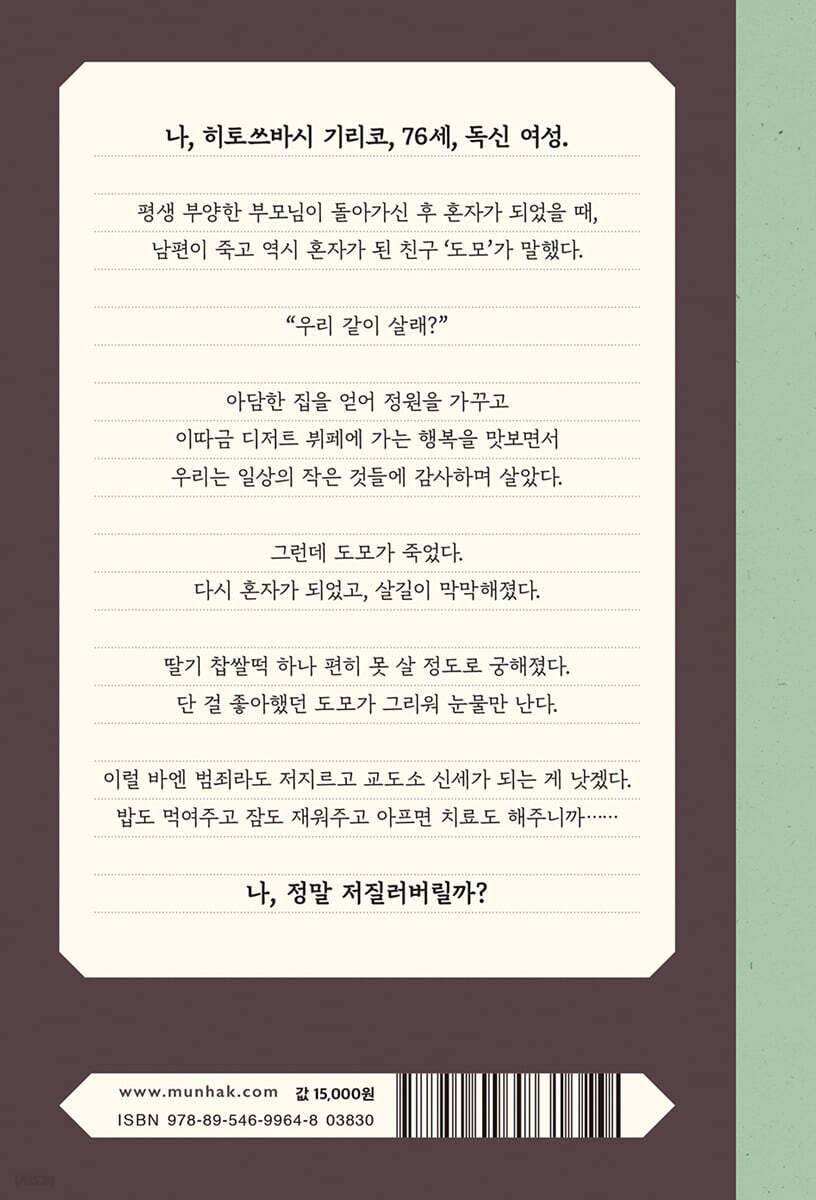 나, 히토쓰바시 기리코, 76세, 독신 여성.
평생 부양한 부모님이 돌아가신 후 혼자가 되었을 때,
남편이 죽고 역시 혼자가 된 친구 ‘도모’가 말했다.
“우리 같이 살래?”
아담한 집을 얻어 정원을 가꾸고
이따금 디저트 뷔페에 가는 행복을 맛보면서
우리는 일상의 작은 것들에 감사하며 살았다.
그런데 도모가 죽었다.
다시 혼자가 되었고, 살길이 막막해졌다.
딸기 찹쌀떡 하나 편히 못 살 정도로 궁해졌다.
단 걸 좋아했던 도모가 그리워 눈물만 난다.
이럴 바엔 범죄라도 저지르고 교도소 신세가 되는 게 낫겠다.
밥도 먹여주고 잠도 재워주고 아프면 치료도 해주니까……
나, 정말 저질러버릴까?
www.munhak.com 값 15,000원
ISBN 978-89-546-9964-8 03830